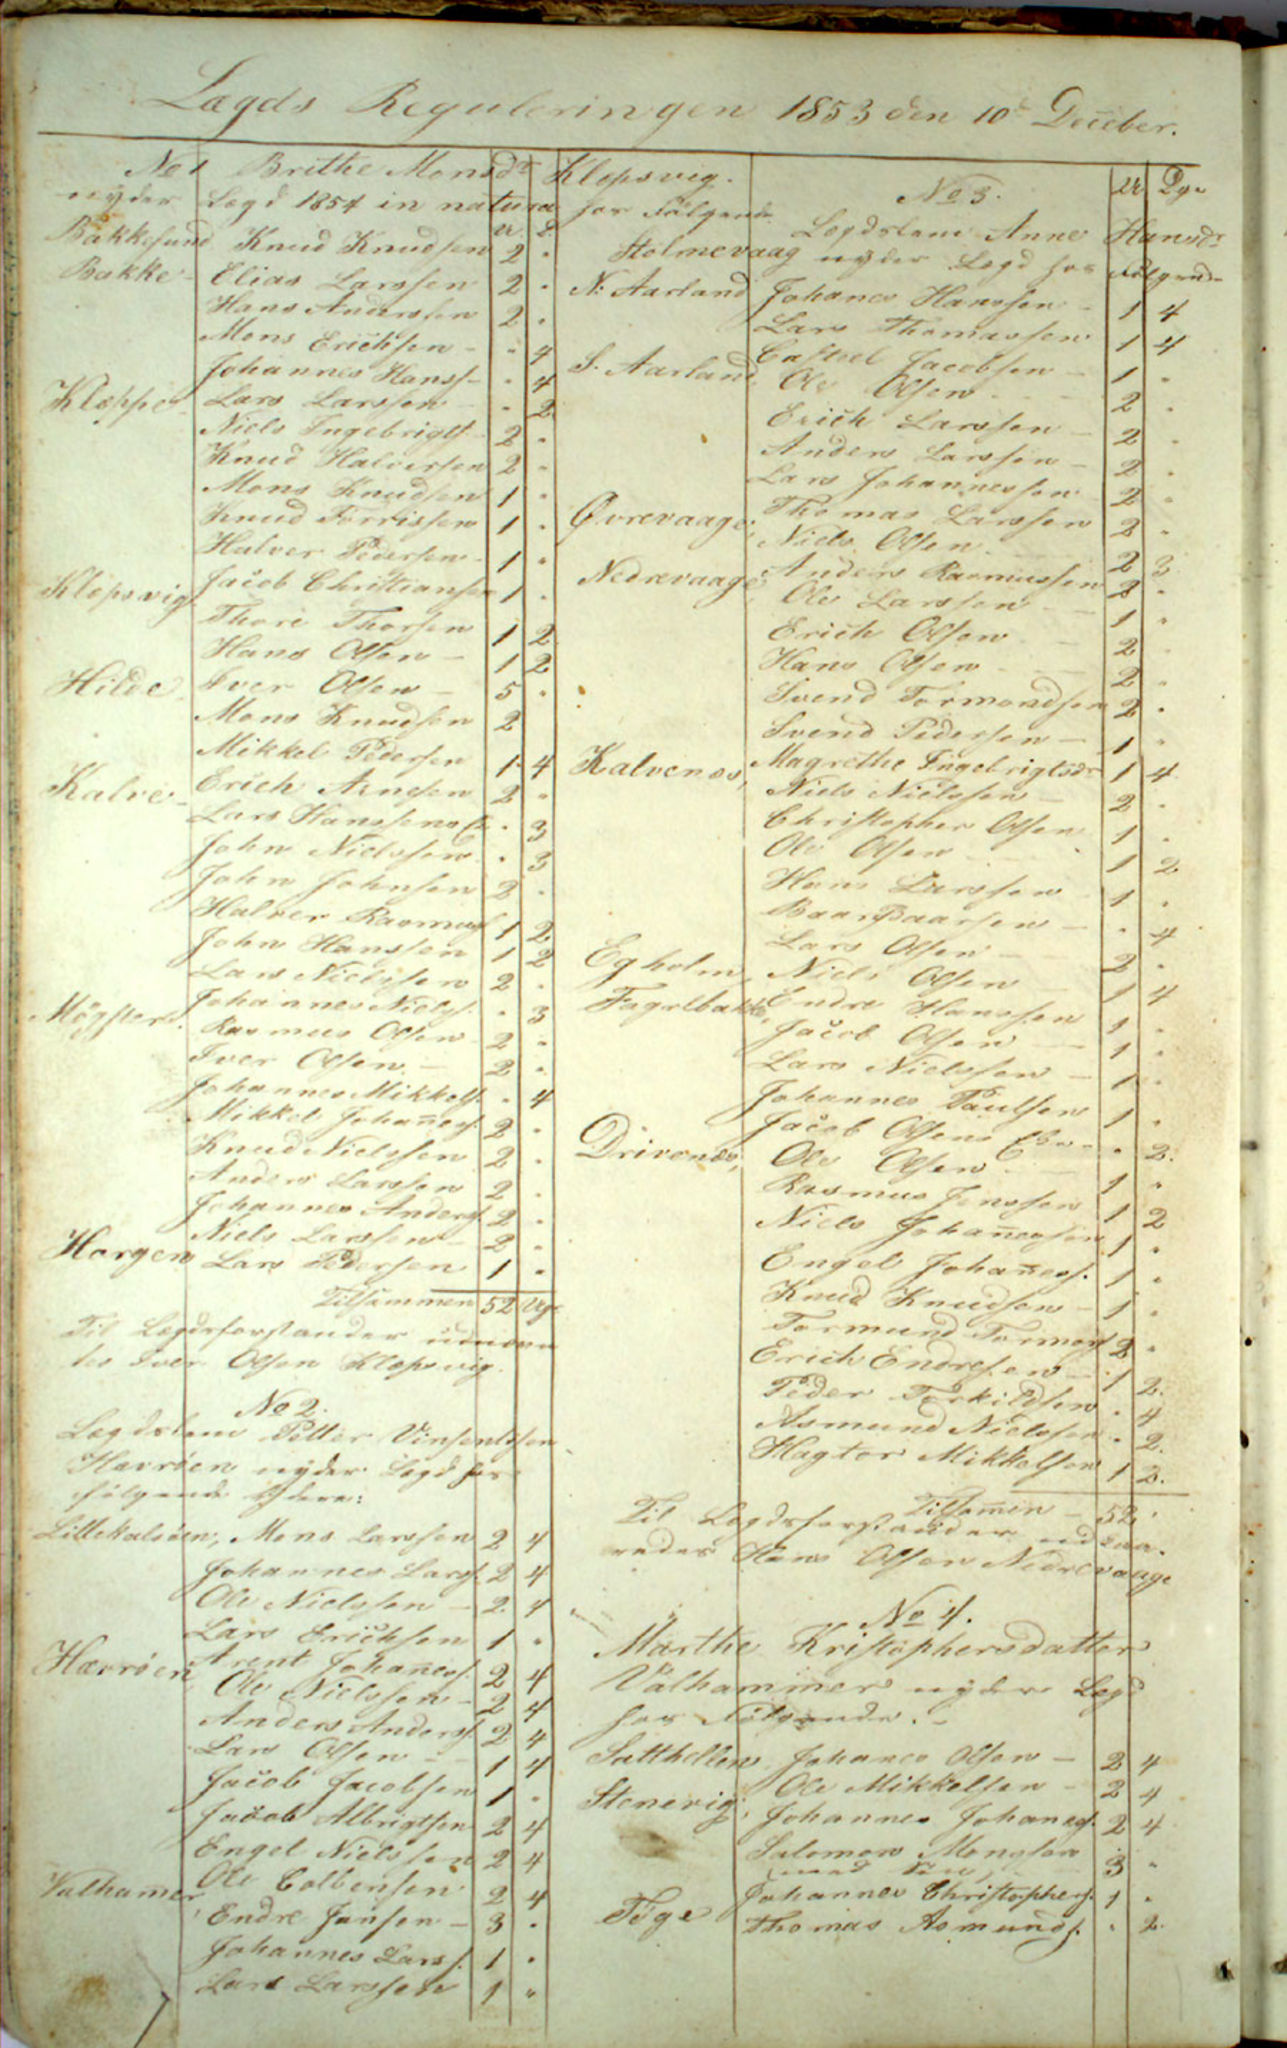 Lægds Reguleringen 1853 den 10de Decèber.
No 1 Brithe Monsdr Klepsvig.
nyder Lægd 1854 in natura hos følgende
U. D.
Bakkesund Knud Knudsen 2 "
Bakke - Elias Larssen 2 "
Hans Anderssen 2 "
Mons Erichsen - " 4
Johannes Hanss - " 4
Kleppe - Lars Larssen - " 2
Niels Ingebrigts 2 "
Knud Halversen 2 "
Mons Knudsen 1 "
Knud Torrissen 1 "
Halver Pedersen - 1 "
Klepsvig Jacob Christiansen 1 "
Thore Thorsen 1 2
Hans Olsen - 1 2
Hilde Iver Olsen - 5 "
Mons Knudsen 2
Mikkel Pedersen 1 4
Kalve - Erich Arnesen 2 "
Lars Hanssens E. " 3
John Nielssen " 3
John Johnsen 2 "
Halver Rasmus 1 2
John Hanssen 1 2
Lars Nielssen 2 "
Møgster. Johannes Niels. " 3
Rasmus Olsen 2 "
Iver Olsen - 2 "
Johannes Mikkels. " 4
Mikkel Johañes. 2 "
Knud Nielssen 2 "
Anders Larssen 2 "
Johannes Anders. 2 "
Niels Larssen - 2 "
Horgen Lars Pedersen 1 "
Tilsammen 52 Uge
Til Lægdsforstander udnævn
tes Iver Olsen Klepsvig.
No 2.
Lægdslem Petter Vinsentssen
Hevrøen nyder Lægd hos
følgende Ydere:
Littlekalsøen, Mons Larssen 2 4
Johannes Larss. 2 4
Ole Nielssen - 2 4
Lars Erichsen 1 "
Hævrøen Arent Johañess. 2 4
Ole Nielssen - 2 4
Anders Anderss. 2 4
Lars Olsen - 1 4
Jacob Jacobsen 1 "
Jacob Albrigtsen 2 4
Engel Nielssen 2 4
Valhamer, Ole Colbensen 2 4
Endre Jansen - 3 "
Johannes Larss. 1 "
Lars Larssen 1 "
No 3. U. Dge
Lægdslem Anne Hansdr
Stolmevaag nyder Lægd hos følgende
N: Aarland Johanes Hanssen - 1 4
Lars Thomassen 1 4
S. Aarland Casteel Jacobsen - 1 "
Ole Olsen - 2 "
Erich Larssen - 2 "
Anders Larssen - 2 "
Lars Johannessen 2 "
Øvrevaage, Thomas Larssen 2 "
Niels Olsen - 2 3
Nedrevaage Anders Rasmussen 2 "
Ole Larssen - 1 "
Erich Olsen - 2 "
Hans Olsen - 2 "
Svend Tormondsen 2 "
Svend Pedersen - 1 "
Kalvenes, Magrethe Ingebrigtsdr 1 4
Niels Nielssen - 2 "
Christopher Olsen 1 "
Ole Olsen 1 2
Hans Larssen 1 "
Baar Baarsen - " 4
Lars Olsen - 2 "
Egholm, Niels Olsen 1 4
Fagelbakke, Endre Hanssen 1 "
Jacob Olsen - 1 "
Lars Nielssen - 1 "
Johannes Paulsen 1 "
Jacob Olsens Eke - " 2.
Drivenes, Ole Olsen - 1 "
Rasmus Jenssen 1 2
Niels Johañessen 1 "
Engel Johañess. 1 "
Knud Knudsen - 1 "
Tormund Tormods 2 "
Erich Endresen - 1 2.
Peder Torkildsen " 4
Asmund Nielssen " 2
Hagtor Mikkelsen 1 2.
Tilsamen - 52.
Til Lægdsforstander udsaa-
redes Hans Olsen Nedrevaage
No 4.
Marthe Kristophersdatter
Valhammer nyder Lægd
hos følgende. -
Satthellen Johanes Olsen - 2 4
Ole Mikkelsen - 2 4
Stenevig, Johannes Johanes. 2 4
Salomon Mongsen
med Søn, - 3 "
Johannes Christophers. 1 "
Tøge Thomas Asmunds. " 2.